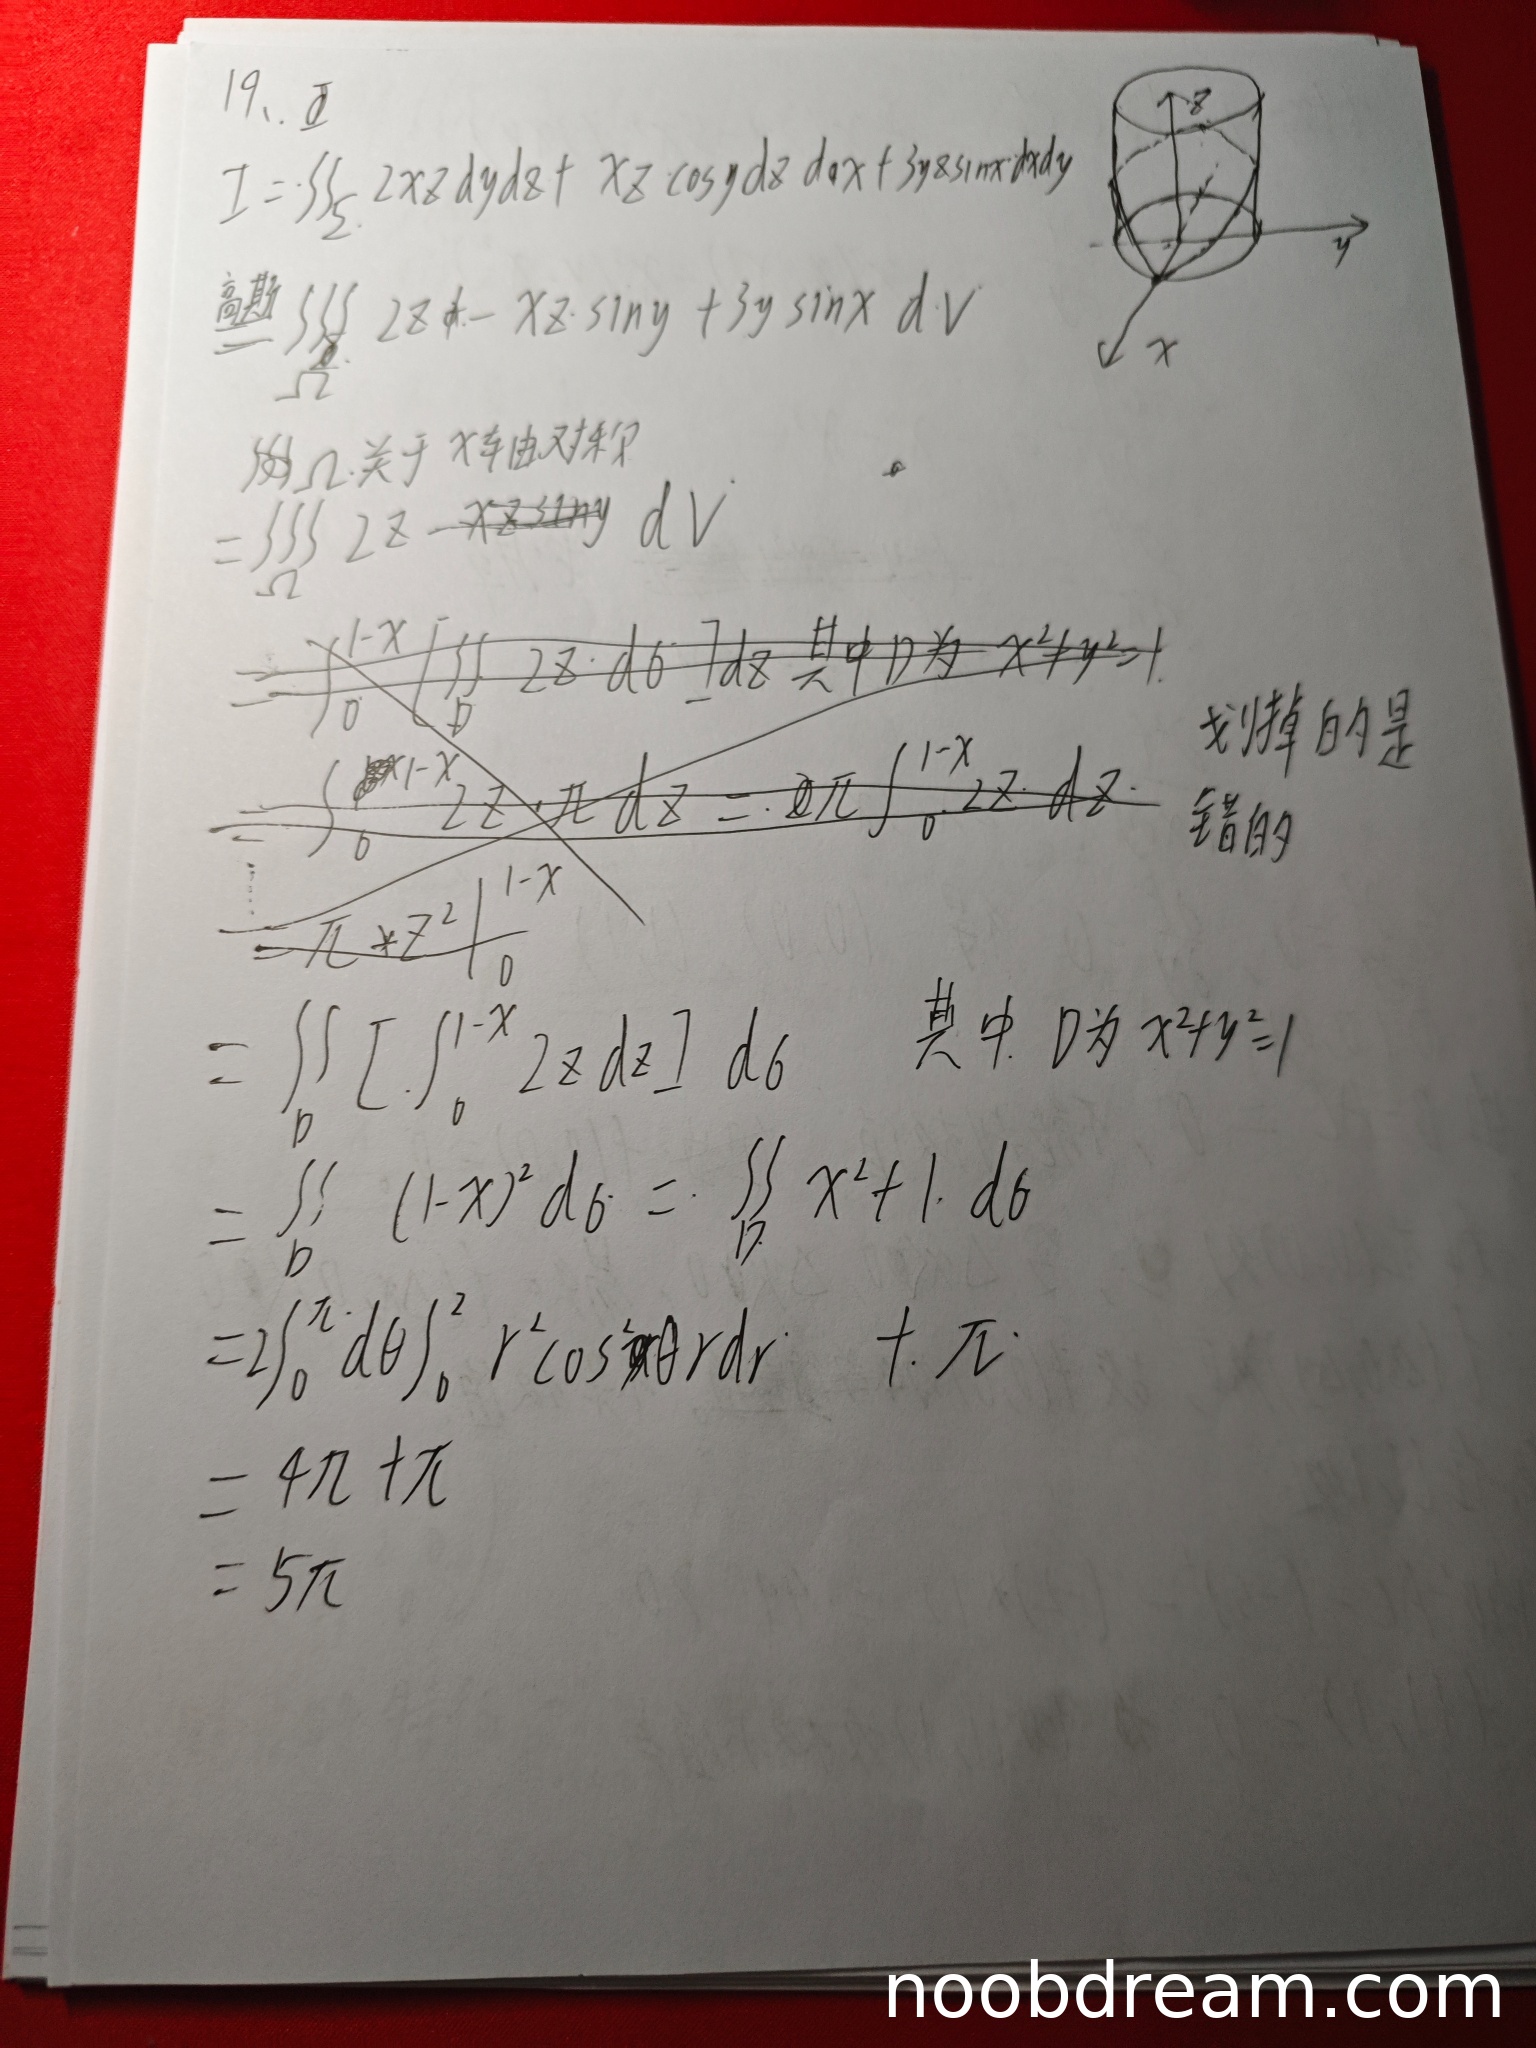 19、. I
I = ∬_Σ 2xz dydz + xz cosy dz dx + 3yz sinx dxdy
z
y
x
高斯
= ∭_Ω 2z - xz·siny + 3y sinx dV
Ω关于x轴对称
= ∭_Ω 2z - xz siny dV
= ∫_0^{1-x} [∬_D 2z·dσ] dz 其中D为 x²+y²=1
= ∫_0^{1-x} 2z·π dz = π ∫_0^{1-x} 2z dz
划掉的是
错的
......
= π z² |_0^{1-x}
= ∬_D [∫_0^{1-x} 2z dz] dσ 其中 D为 x²+y²=1
= ∬_D (1-x)² dσ = ∬_D x²+1 dσ
= 2∫_0^π dθ ∫_0^2 r²cos²θ r dr + π
= 4π + π
= 5π
noobdream.com